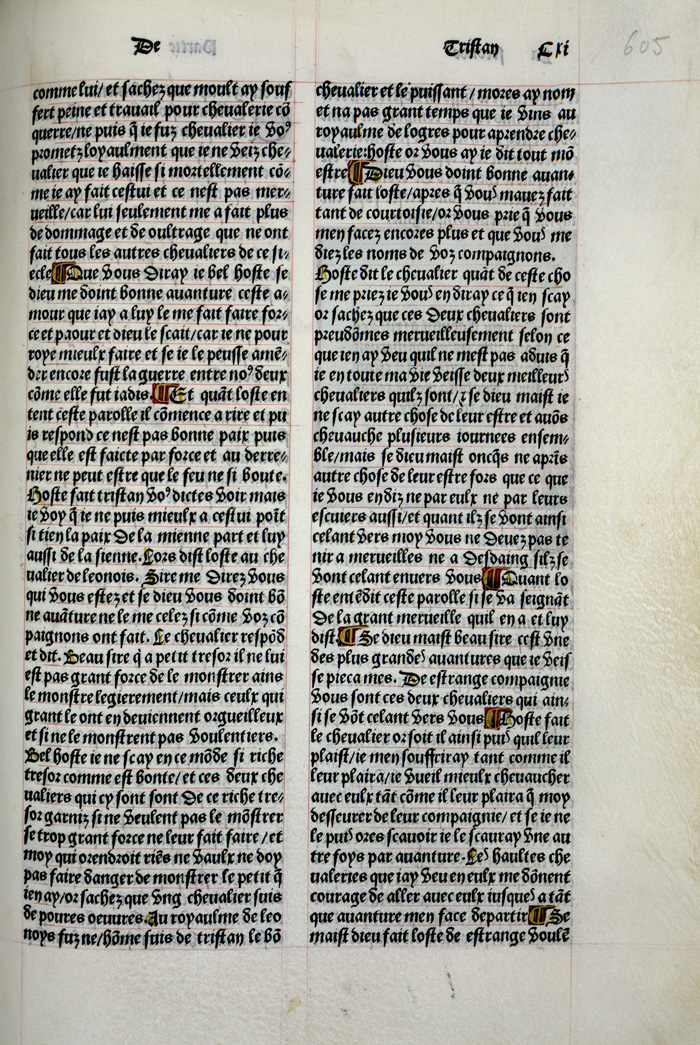 De
Tristan Cxi
605
comme lui/ et sachez que moult ay souf
fert peine et trauail pour cheualerie cõ
querre/ne puis q̃ ie fuz cheualier ie vo⁹
prometz loyaulment que ie ne veiz che⸗
ualier que ie haisse si mortellement cõ⸗
me ie ay fait cestui et ce nest pas mer⸗
ueille/car lui seulement me a fait plus
de dommage et de oultrage que ne ont
fait tous les autres cheualiers de ce si⸗
ecle ¶Que vous diray ie bel hoste se
dieu me doint bonne auanture ceste a⸗
mour que iay a luy le me fait faire for⸗
ce et paour et dieu le scait/car ie ne pour
roye mieulx faire et se ie le peusse amẽ⸗
der encore fust la guerre entre no⁹ deux
cõme elle fut iadis. ¶Et quãt loste en
tent ceste parolle il cõmence a rire et pu
is respond ce nest pas bonne paix puis
que elle est faicte par force et au derre⸗
nier ne peut estre que le feu ne si boute.
Hoste fait tristan vo⁹ dictes voir mais
ie voy q̃ ie ne puis mieulx a cestui poĩt
si tien la paix De la mienne part et luy
aussi de la sienne. Lors dist loste au che
ualier de leonois. Sire me direz vous
qui vous estez et se dieu vous doint bõ
ne auãture ne le me celez si cõme voz cõ
paignons ont fait. Le cheualier respõd
et dit. Beau sire q̃ a petit tresor il ne lui
est pas grant force de le monstrer ains
le monstre legierement/mais ceulx qui
grant le ont en deuiennent orgueilleux
et si ne le monstrent pas voulentiers.
Bel hoste ie ne scay en ce mõde si riche
tresor comme est bonte/et ces deux che
ualiers qui cy sont sont De ce riche tre⸗
sor garniz si ne veulent pas le mõstrer
se trop grant force ne leur fait faire/et
moy qui orendroit riẽs ne vaulx ne doy
pas faire danger de monstrer le petit q̃
ien ay/or sachez que vng cheualier suis
de poures oeuures. Au royaulme de leo
noys fuz ne/hõme suis de tristan le bõ
cheualier et le puissant/mores ay nom
et na pas grant temps que ie vins au
royaulme de logres pour aprendre che⸗
ualerie:hoste or vous ay ie dit tout mõ
estre ¶Dieu vous doint bonne auan⸗
ture fait loste/apres q̃ vous mauez fait
tant de courtoisie/or vous prie q̃ vous
men facez encores plus et que vous me
diez les noms de voz compaignons.
Hoste dit le cheualier quãt de ceste cho
se me priez ie vous en diray ce q̃ ien scay
or sachez que ces Deux cheualiers sont
preudõmes merueilleusement selon ce
que ien ay veu quil ne mest pas aduis q̃
ie en toute ma vie veisse deux meilleurs
cheualiers quilz sont/⁊ se dieu maist ie
ne scay autre chose de leur estre et auõs
cheuauche plusieurs iournees ensem⸗
ble/mais se dieu maist oncq̃s ne apris
autre chose de leur estre fors que ce que
ie vous en diz ne par eulx ne par leurs
escuiers aussi/et quant ilz se vont ainsi
celant vers moy vous ne deuez pas te
nir a merueilles ne a Desdaing silz se
vont celant enuers vous ¶Quant lo
ste entẽdit ceste parolle si se va seignãt
De la grant merueille quil en a et luy
dist. ¶Se dieu maist beau sire cest vne
des plus grandes auantures que ie veis
se pieca mes. De estrange compaignie
vous sont ces deux cheualiers qui ain⸗
si se võt celant vers vous ¶Hoste fait
le cheualier or soit il ainsi puis quil leur
plaist/ie men souffriray tant comme il
leur plaira/ie vueil mieulx cheuaucher
auec eulx tãt cõme il leur plaira q̃ moy
desseurer de leur compaignie/et se ie ne
le puis ores scauoir ie le scauray vne au
tre foys par auanture. Les haultes che
ualeries que iay veu en eulx me dõnent
courage de aller auec eulx iusques a tãt
que auanture men face departir ¶Se
maist dieu fait loste de estrange voulẽ